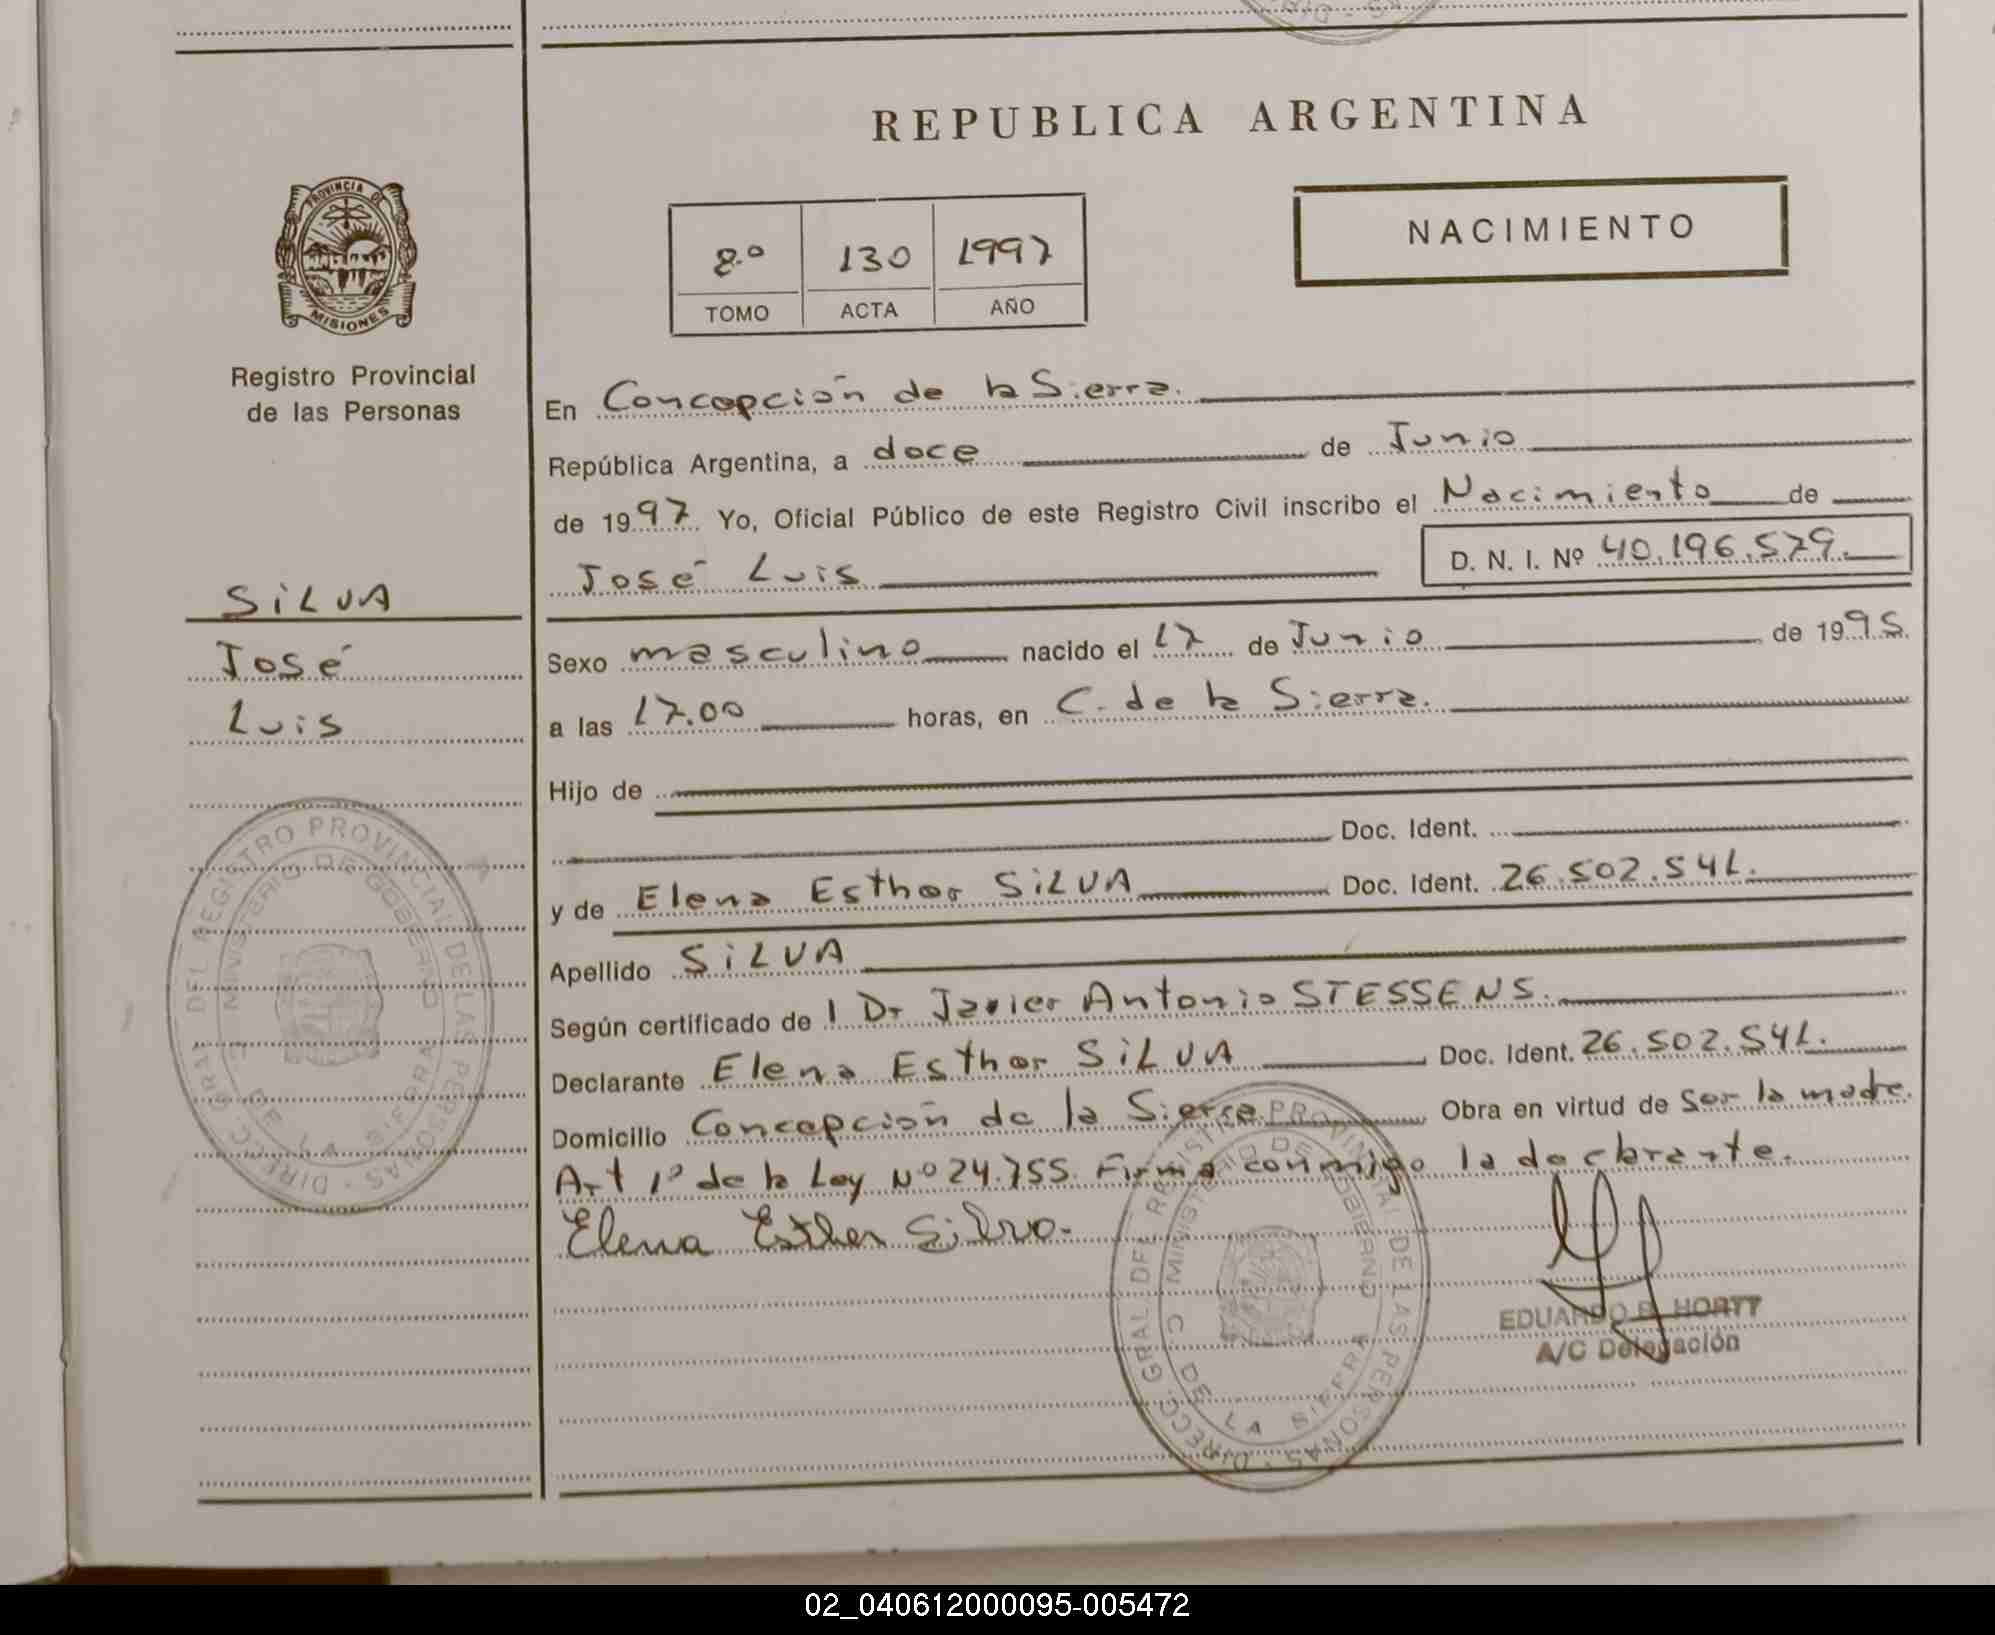 REPUBLICA ARGENTINA
PROVINCIA DE
MISIONES
Registro Provincial
de las Personas
NACIMIENTO
8º 130 1997
TOMO ACTA AÑO
En Concepción de la Sierra.
República Argentina, a doce de Junio
de 1997 Yo, Oficial Público de este Registro Civil inscribo el Nacimiento de
José Luis D. N. I. Nº 40.196.579.
SILVA
José
Luis
Sexo masculino nacido el 17 de Junio de 1995.
a las 17.00 horas, en C. de la Sierra.
Hijo de
Doc. Ident.
y de Elena Esther SILVA Doc. Ident. 26.502.541.
Apellido SILVA
Según certificado de 1 Dr Javier Antonio STESSENS.
Declarante Elena Esther SILVA Doc. Ident. 26.502.541.
Domicilio Concepción de la Sierra Obra en virtud de Ser la madre.
Art 1º de la Ley Nº 24.755. Firma conmigo la declarante.
Elena Esther Silva.
EDUARDO R. HORTT
A/C Delegación
DIRECC. GRAL DEL REGISTRO PROVINCIAL DE LAS PERSONAS
MINISTERIO DE GOBIERNO
C. DE LA SIERRA
DIRECC. GRAL DEL REGISTRO PROVINCIAL DE LAS PERSONAS
MINISTERIO DE GOBIERNO
C. DE LA SIERRA
02_040612000095-005472